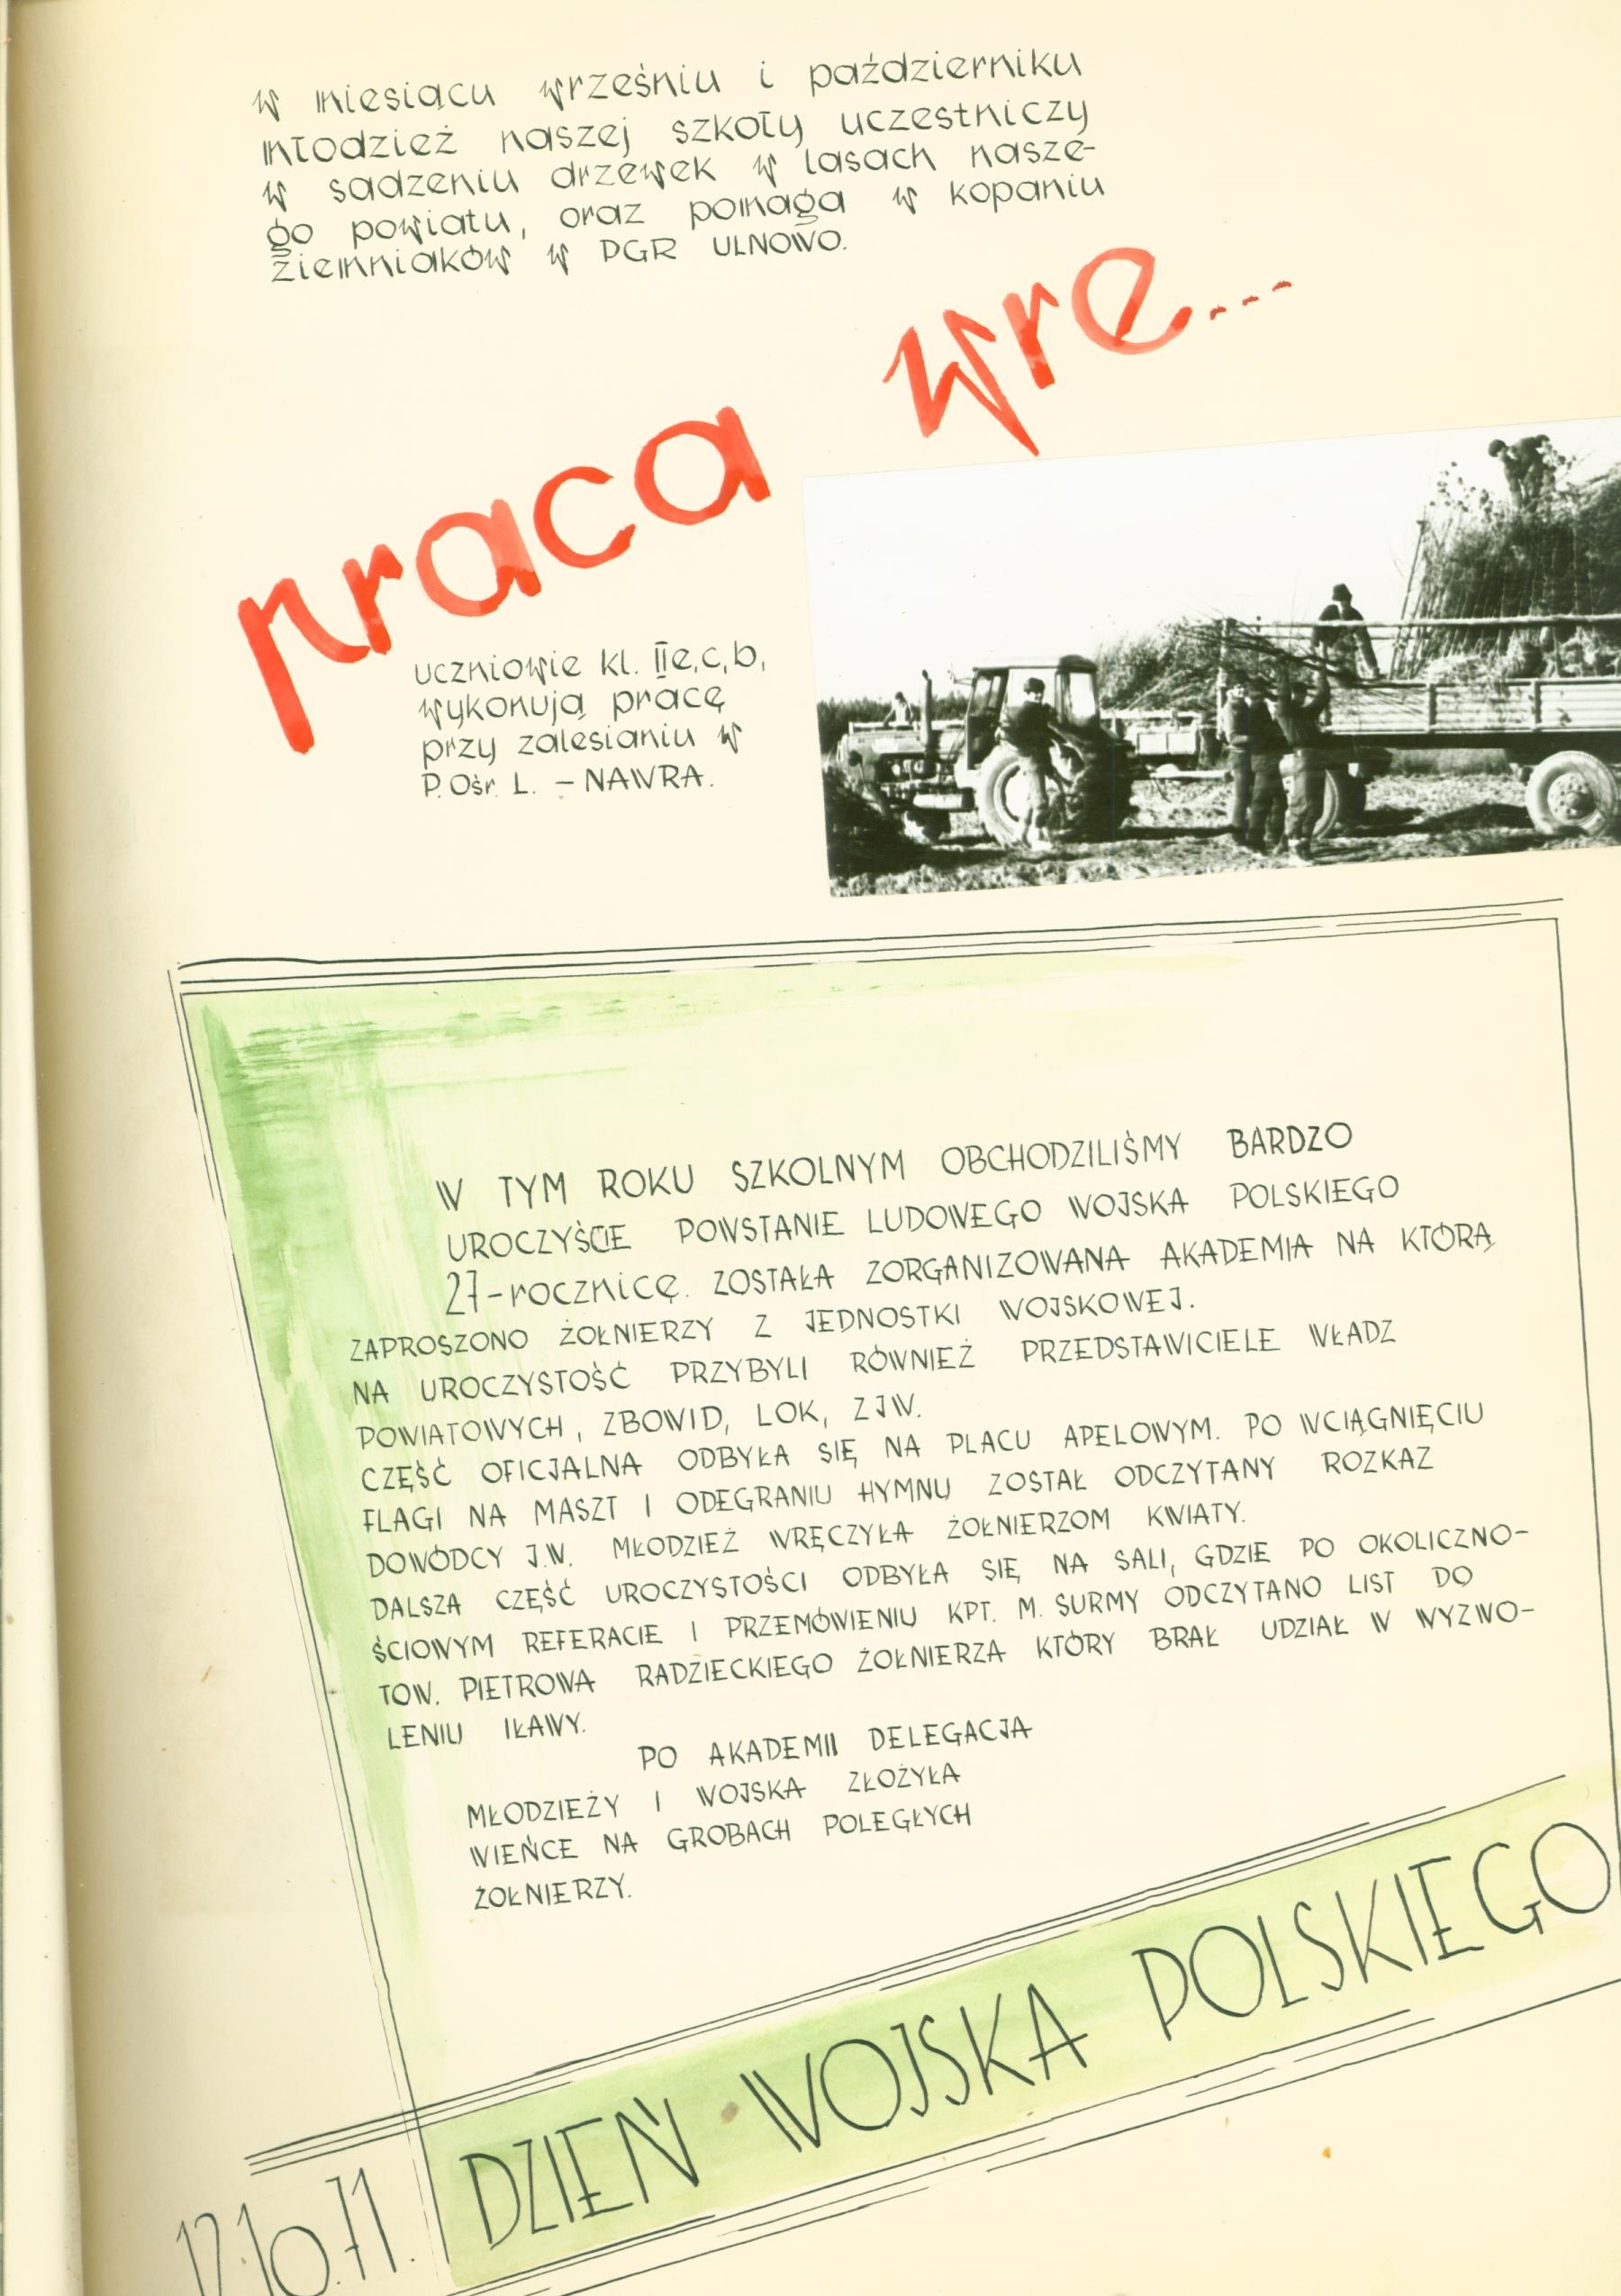 w miesiącu wrześniu i październiku
młodzież naszej szkoły uczestniczy
w sadzeniu drzewek w lasach nasze-
go powiatu, oraz pomaga w kopaniu
ziemniaków w PGR ULNOWO.
praca wre...
uczniowie kl. II e, c, b,
wykonują pracę
przy zalesianiu w
P. Ośr. L. – NAWRA.
W TYM ROKU SZKOLNYM OBCHODZILIŚMY BARDZO
UROCZYŚCIE POWSTANIE LUDOWEGO WOJSKA POLSKIEGO
27-rocznicę. ZOSTAŁA ZORGANIZOWANA AKADEMIA NA KTÓRĄ
ZAPROSZONO ŻOŁNIERZY Z JEDNOSTKI WOJSKOWEJ.
NA UROCZYSTOŚĆ PRZYBYLI RÓWNIEŻ PRZEDSTAWICIELE WŁADZ
POWIATOWYCH, ZBOWID, LOK, ZJW.
CZĘŚĆ OFICJALNA ODBYŁA SIĘ NA PLACU APELOWYM. PO WCIĄGNIĘCIU
FLAGI NA MASZT I ODEGRANIU HYMNU ZOSTAŁ ODCZYTANY ROZKAZ
DOWÓDCY J.W. MŁODZIEŻ WRĘCZYŁA ŻOŁNIERZOM KWIATY.
DALSZA CZĘŚĆ UROCZYSTOŚCI ODBYŁA SIĘ NA SALI, GDZIE PO OKOLICZNO-
ŚCIOWYM REFERACIE I PRZEMÓWIENIU KPT. M. SURMY ODCZYTANO LIST DO
TOW. PIETROWA RADZIECKIEGO ŻOŁNIERZA KTÓRY BRAŁ UDZIAŁ W WYZWO-
LENIU IŁAWY.
PO AKADEMII DELEGACJA
MŁODZIEŻY I WOJSKA ZŁOŻYŁA
WIEŃCE NA GROBACH POLEGŁYCH
ŻOŁNIERZY.
12.10.71. DZIEŃ WOJSKA POLSKIEGO